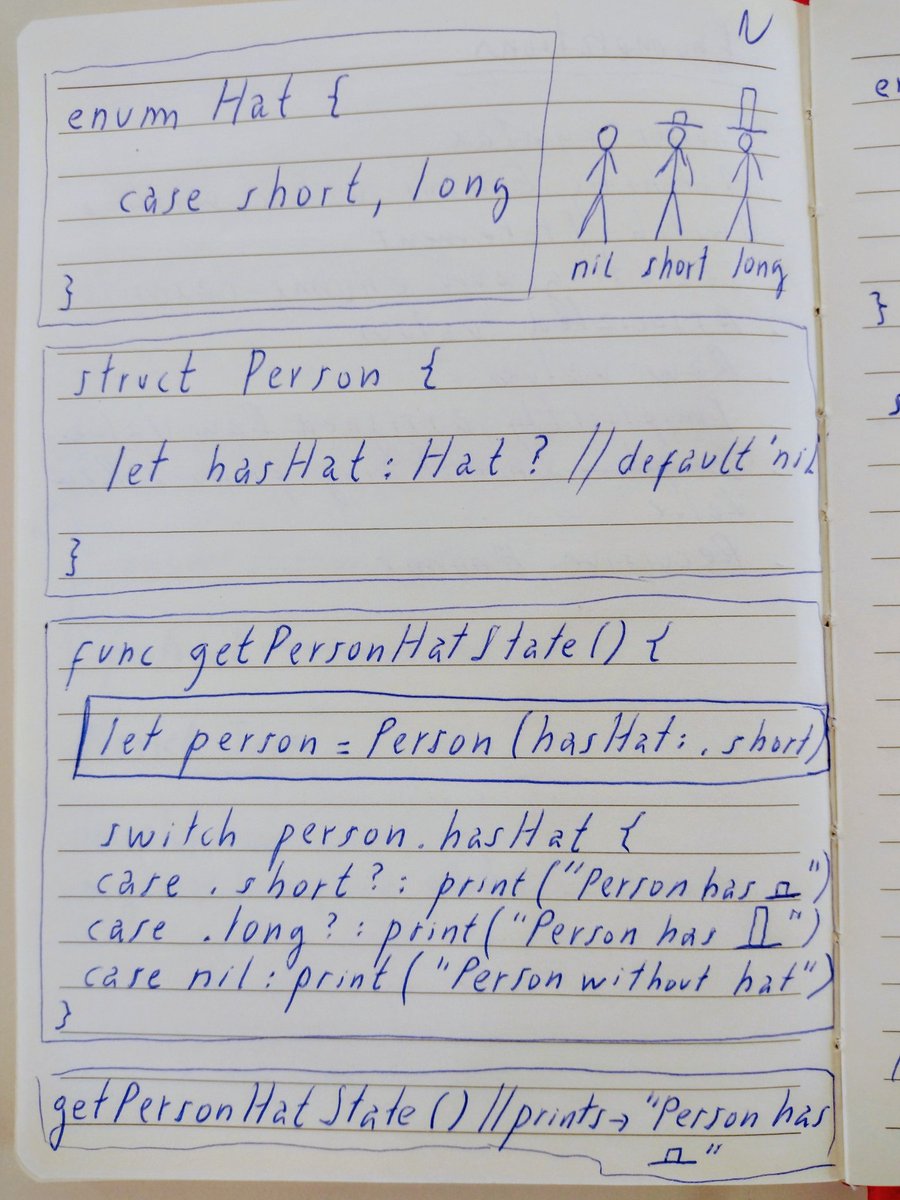 N
enum Hat {
case short, long
}
nil short long
struct Person {
let hasHat : Hat ? //default 'nil
}
func getPersonHatState() {
let person = Person (hasHat: .short)
switch person.hasHat {
case .short? : print("Person has ")
case .long? : print("Person has ")
case nil : print ("Person without hat")
}
getPersonHatState() //prints→ "Person has
"
e
}
s